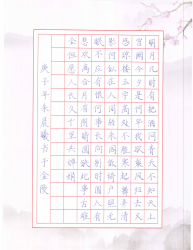 明月几时有把酒问青天不知天上
宫阙今夕是何年我欲乘风归去又
恐琼楼玉宇高处不胜寒起舞弄清
影何似在人间转朱阁低绮户照无
眠不应有恨何事长向别时圆人有
悲欢离合月有阴晴圆缺此事古难
全但愿人长久千里共婵娟
庚子年晨曦书于金陵